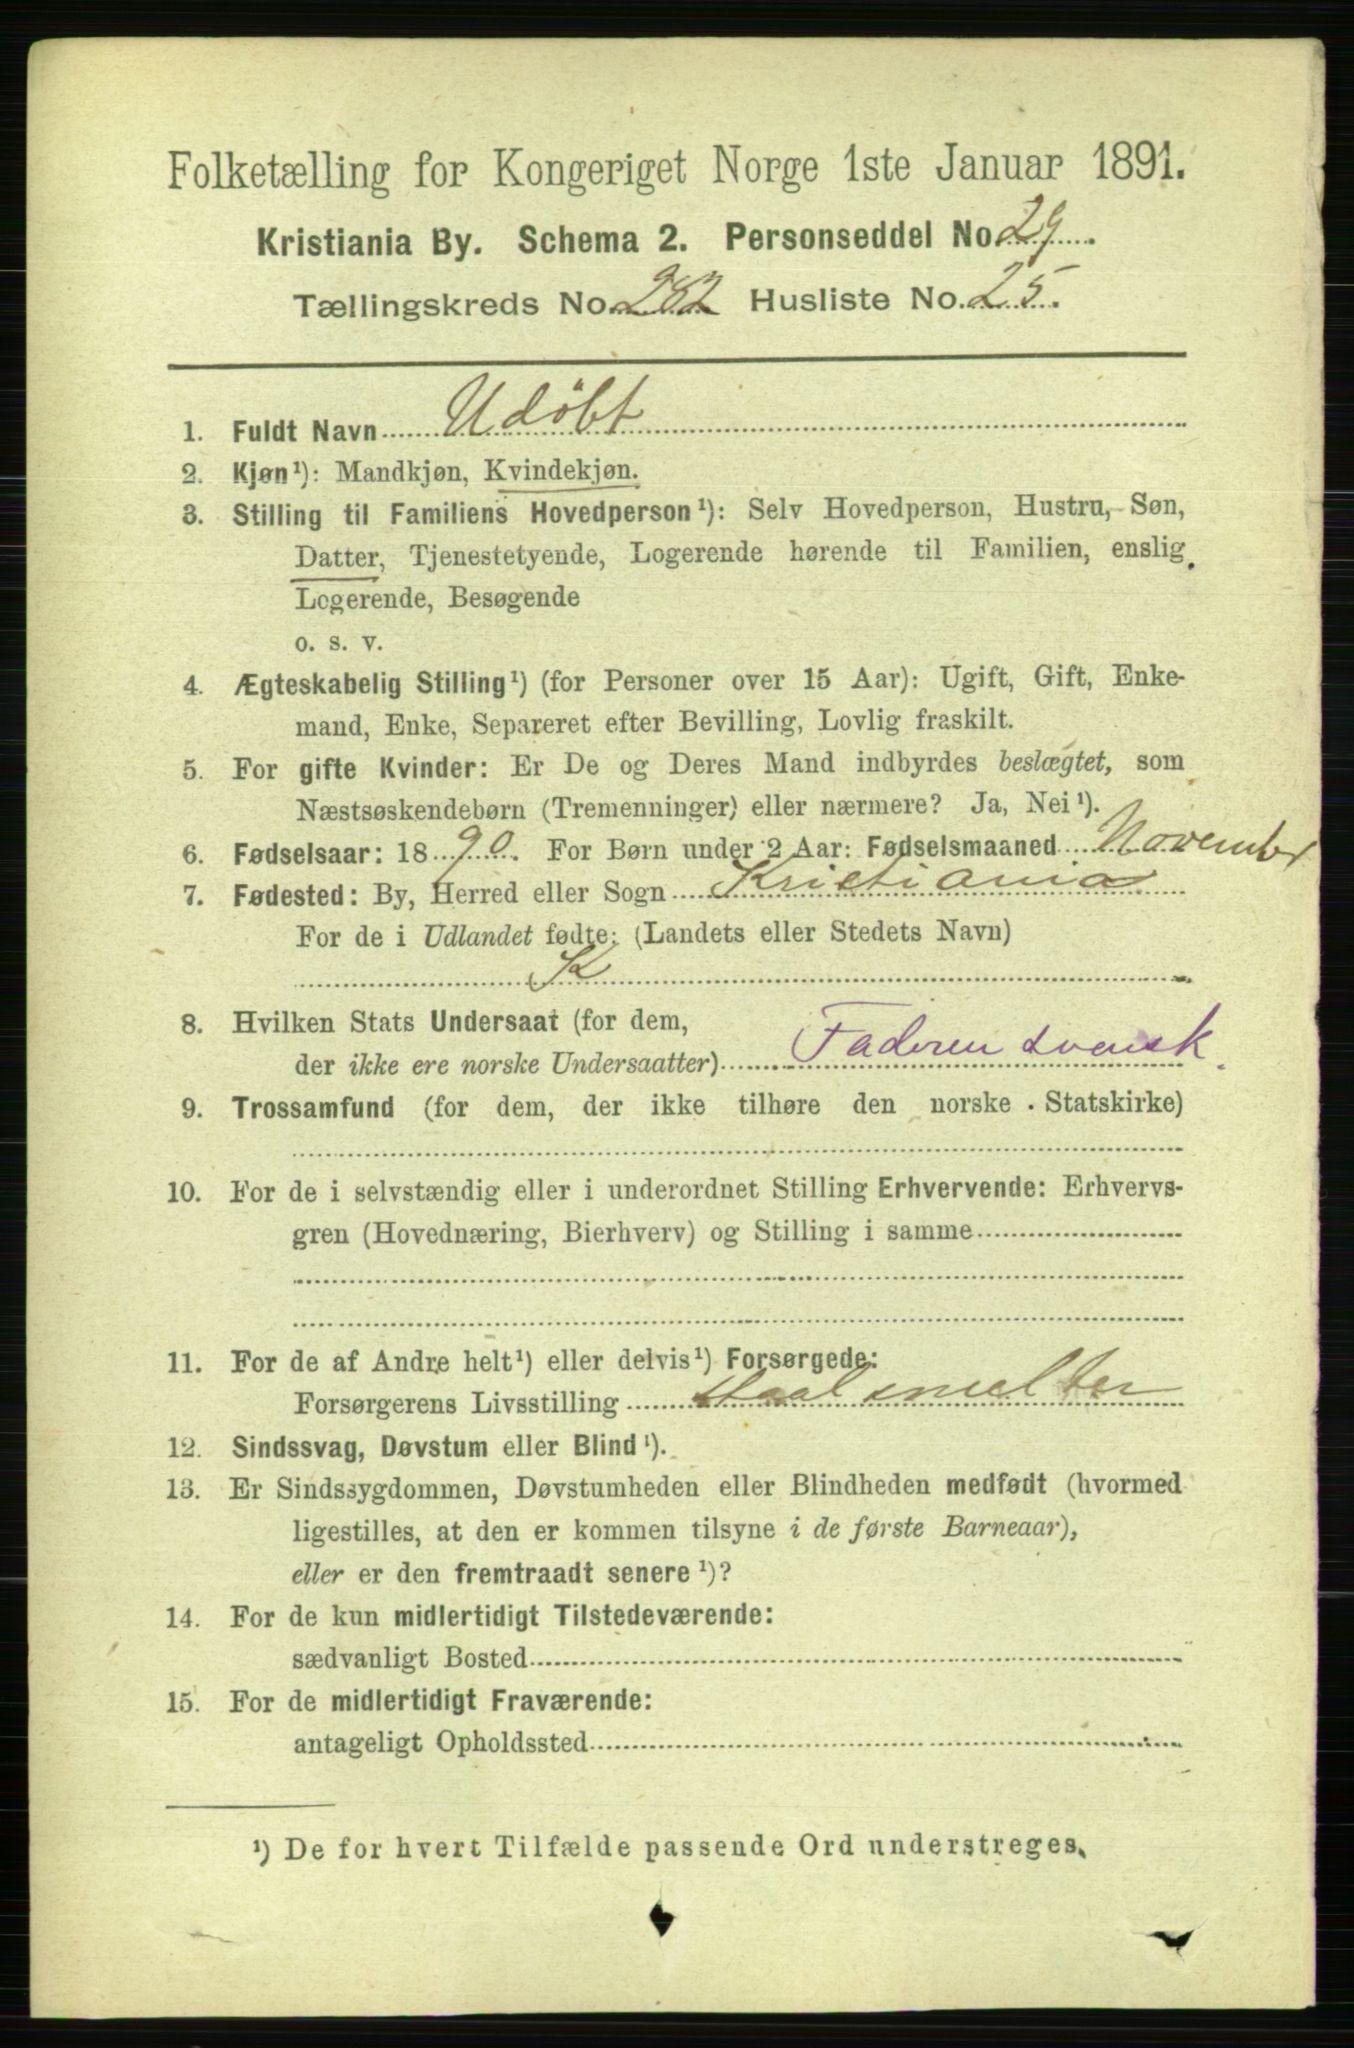 Folketælling for Kongeriget Norge 1ste Januar 1891.
Kristiania By. Schema 2. Personseddel No. 29.
Tællingskreds No. 282 Husliste No. 25.
1. Fuldt Navn Udøbt
2. Kjøn¹): Mandkjøn, Kvindekjøn.
3. Stilling til Familiens Hovedperson¹): Selv Hovedperson, Hustru, Søn,
Datter, Tjenestetyende, Logerende hørende til Familien, enslig
Logerende, Besøgende
o. s. v.
4. Ægteskabelig Stilling¹) (for Personer over 15 Aar): Ugift, Gift, Enke-
mand, Enke, Separeret efter Bevilling, Lovlig fraskilt.
5. For gifte Kvinder: Er De og Deres Mand indbyrdes beslægtet, som
Næstsøskendebørn (Tremenninger) eller nærmere? Ja, Nei¹).
6. Fødselsaar: 1890. For Børn under 2 Aar: Fødselsmaaned November
7. Fødested: By, Herred eller Sogn Kristiania
For de i Udlandet fødte: (Landets eller Stedets Navn)
K
8. Hvilken Stats Undersaat (for dem,
der ikke ere norske Undersaatter) Faderen svensk.
9. Trossamfund (for dem, der ikke tilhøre den norske Statskirke)
10. For de i selvstændig eller i underordnet Stilling Erhvervende: Erhvervs-
gren (Hovednæring, Bierhverv) og Stilling i samme
11. For de af Andre helt¹) eller delvis¹) Forsørgede:
Forsørgerens Livsstilling Staalsmelter
12. Sindssvag, Døvstum eller Blind¹).
13. Er Sindssygdommen, Døvstumheden eller Blindheden medfødt (hvormed
ligestilles, at den er kommen tilsyne i de første Barneaar),
eller er den fremtraadt senere¹)?
14. For de kun midlertidigt Tilstedeværende:
sædvanligt Bosted
15. For de midlertidigt Fraværende:
antageligt Opholdssted
¹) De for hvert Tilfælde passende Ord understreges.